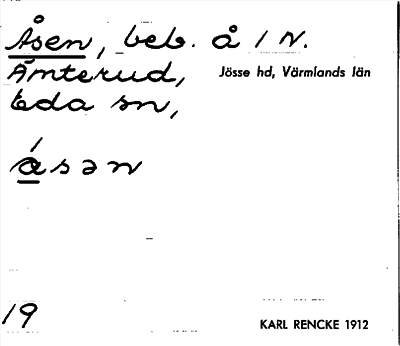 Åsen, beb. å / N.
Ämterud, Jösse hd, Värmlands län
Eda sn,
åsən
19
KARL RENCKE 1912